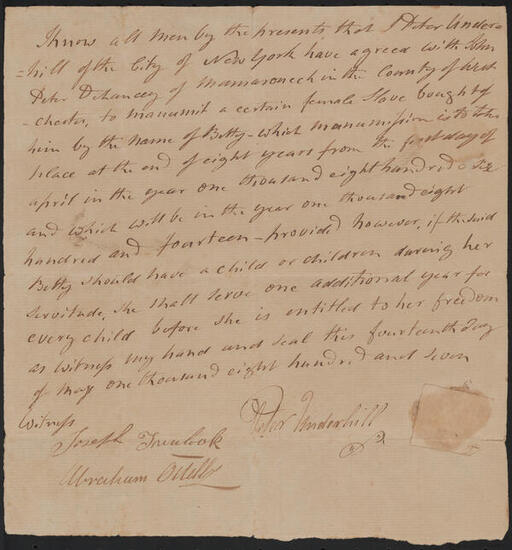 Know all men by the presents that I Peter Under=
=hill of the City of New York have agreed with John
Peter Delancey of Mamaroneck in the County of West
-chester, to manumit a certain female Slave bought of
him by the name of Betty - which manumission is to take
place at the end of eight years from the first day of
april in the year one thousand eight hundred & six
and which will be in the year one thousand eight
hundred and fourteen - provided however, if the said
Betty should have a child or children during her
servitude, she shall serve one additional year for
every child before she is entitled to her freedom
as witness my hand and seal this fourteenth day
of may one thousand eight hundred and seven
Witness
Peter Underhill
Joseph
Abraham